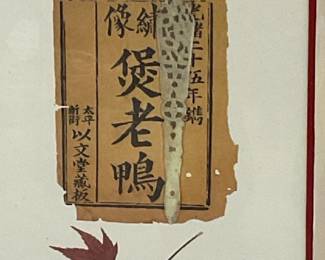 光緒二十五年鐫
繡像
煲老鴨
太平新街以文堂藏板